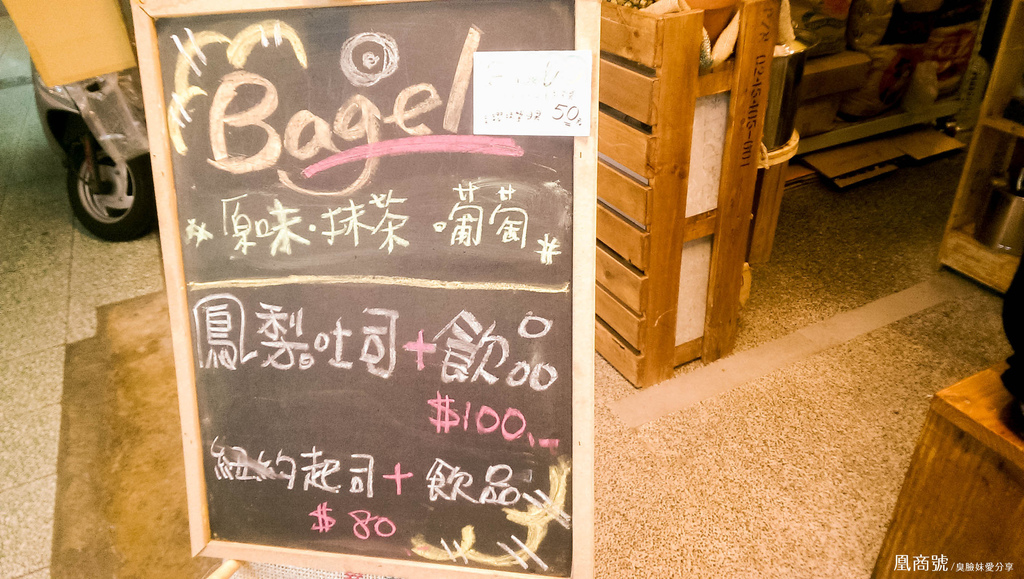 Bagel
50
原味·抹茶·葡萄
鳳梨吐司+飲品
$100.-
紐約起司+飲品
$80
凰商號/臭臉妹愛分享